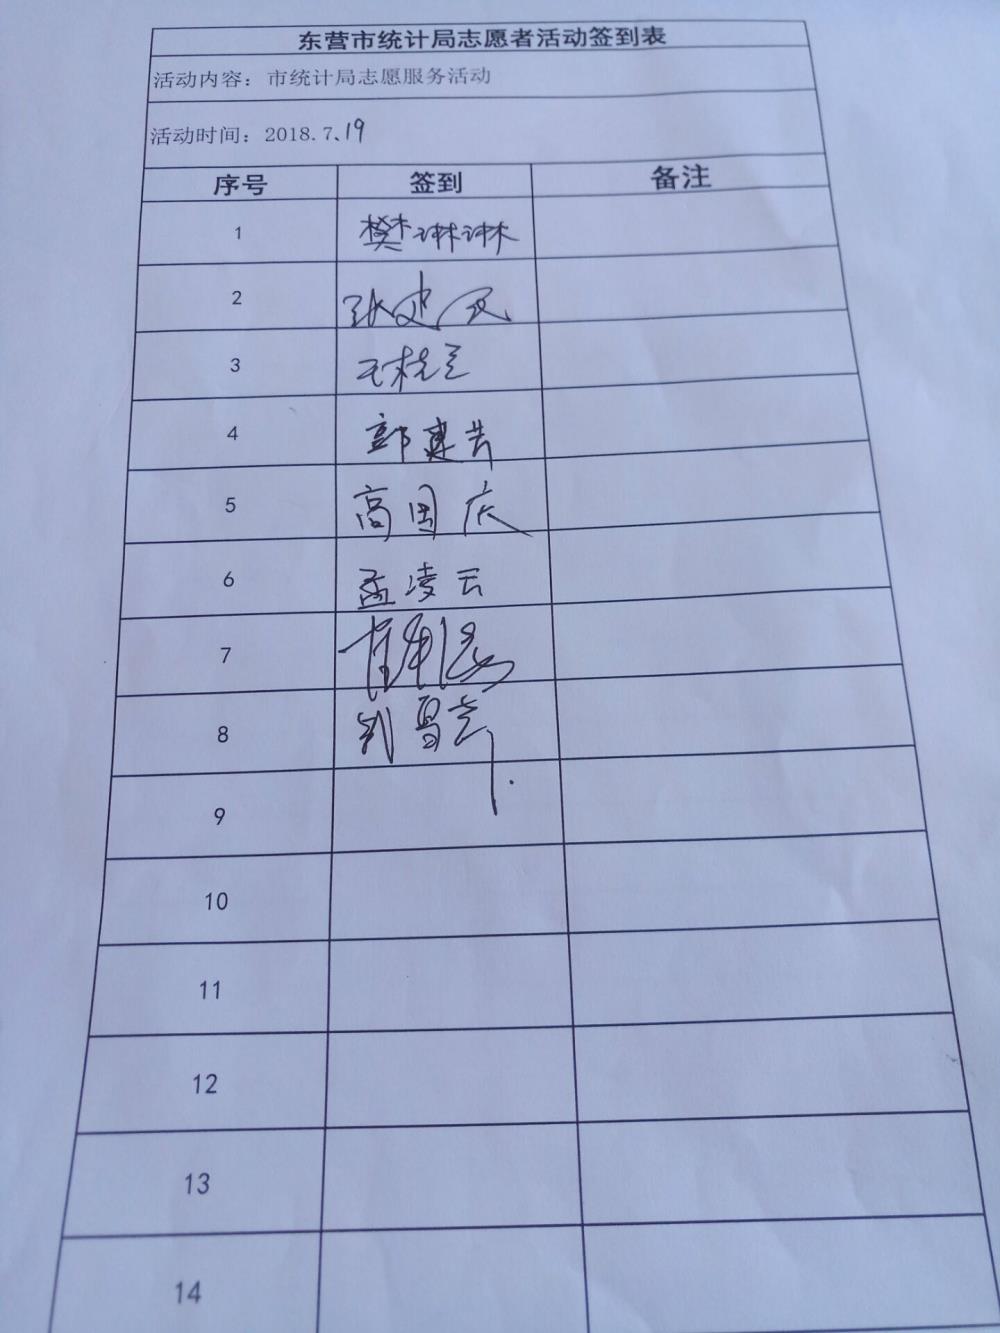 东营市统计局志愿者活动签到表
活动内容：市统计局志愿服务活动
活动时间：2018.7.19
序号 签到 备注
1 樊琳琳
2 张建民
3 王桂兰
4
5 高国庆
6 孟凌云
7
8
9
10
11
12
13
14